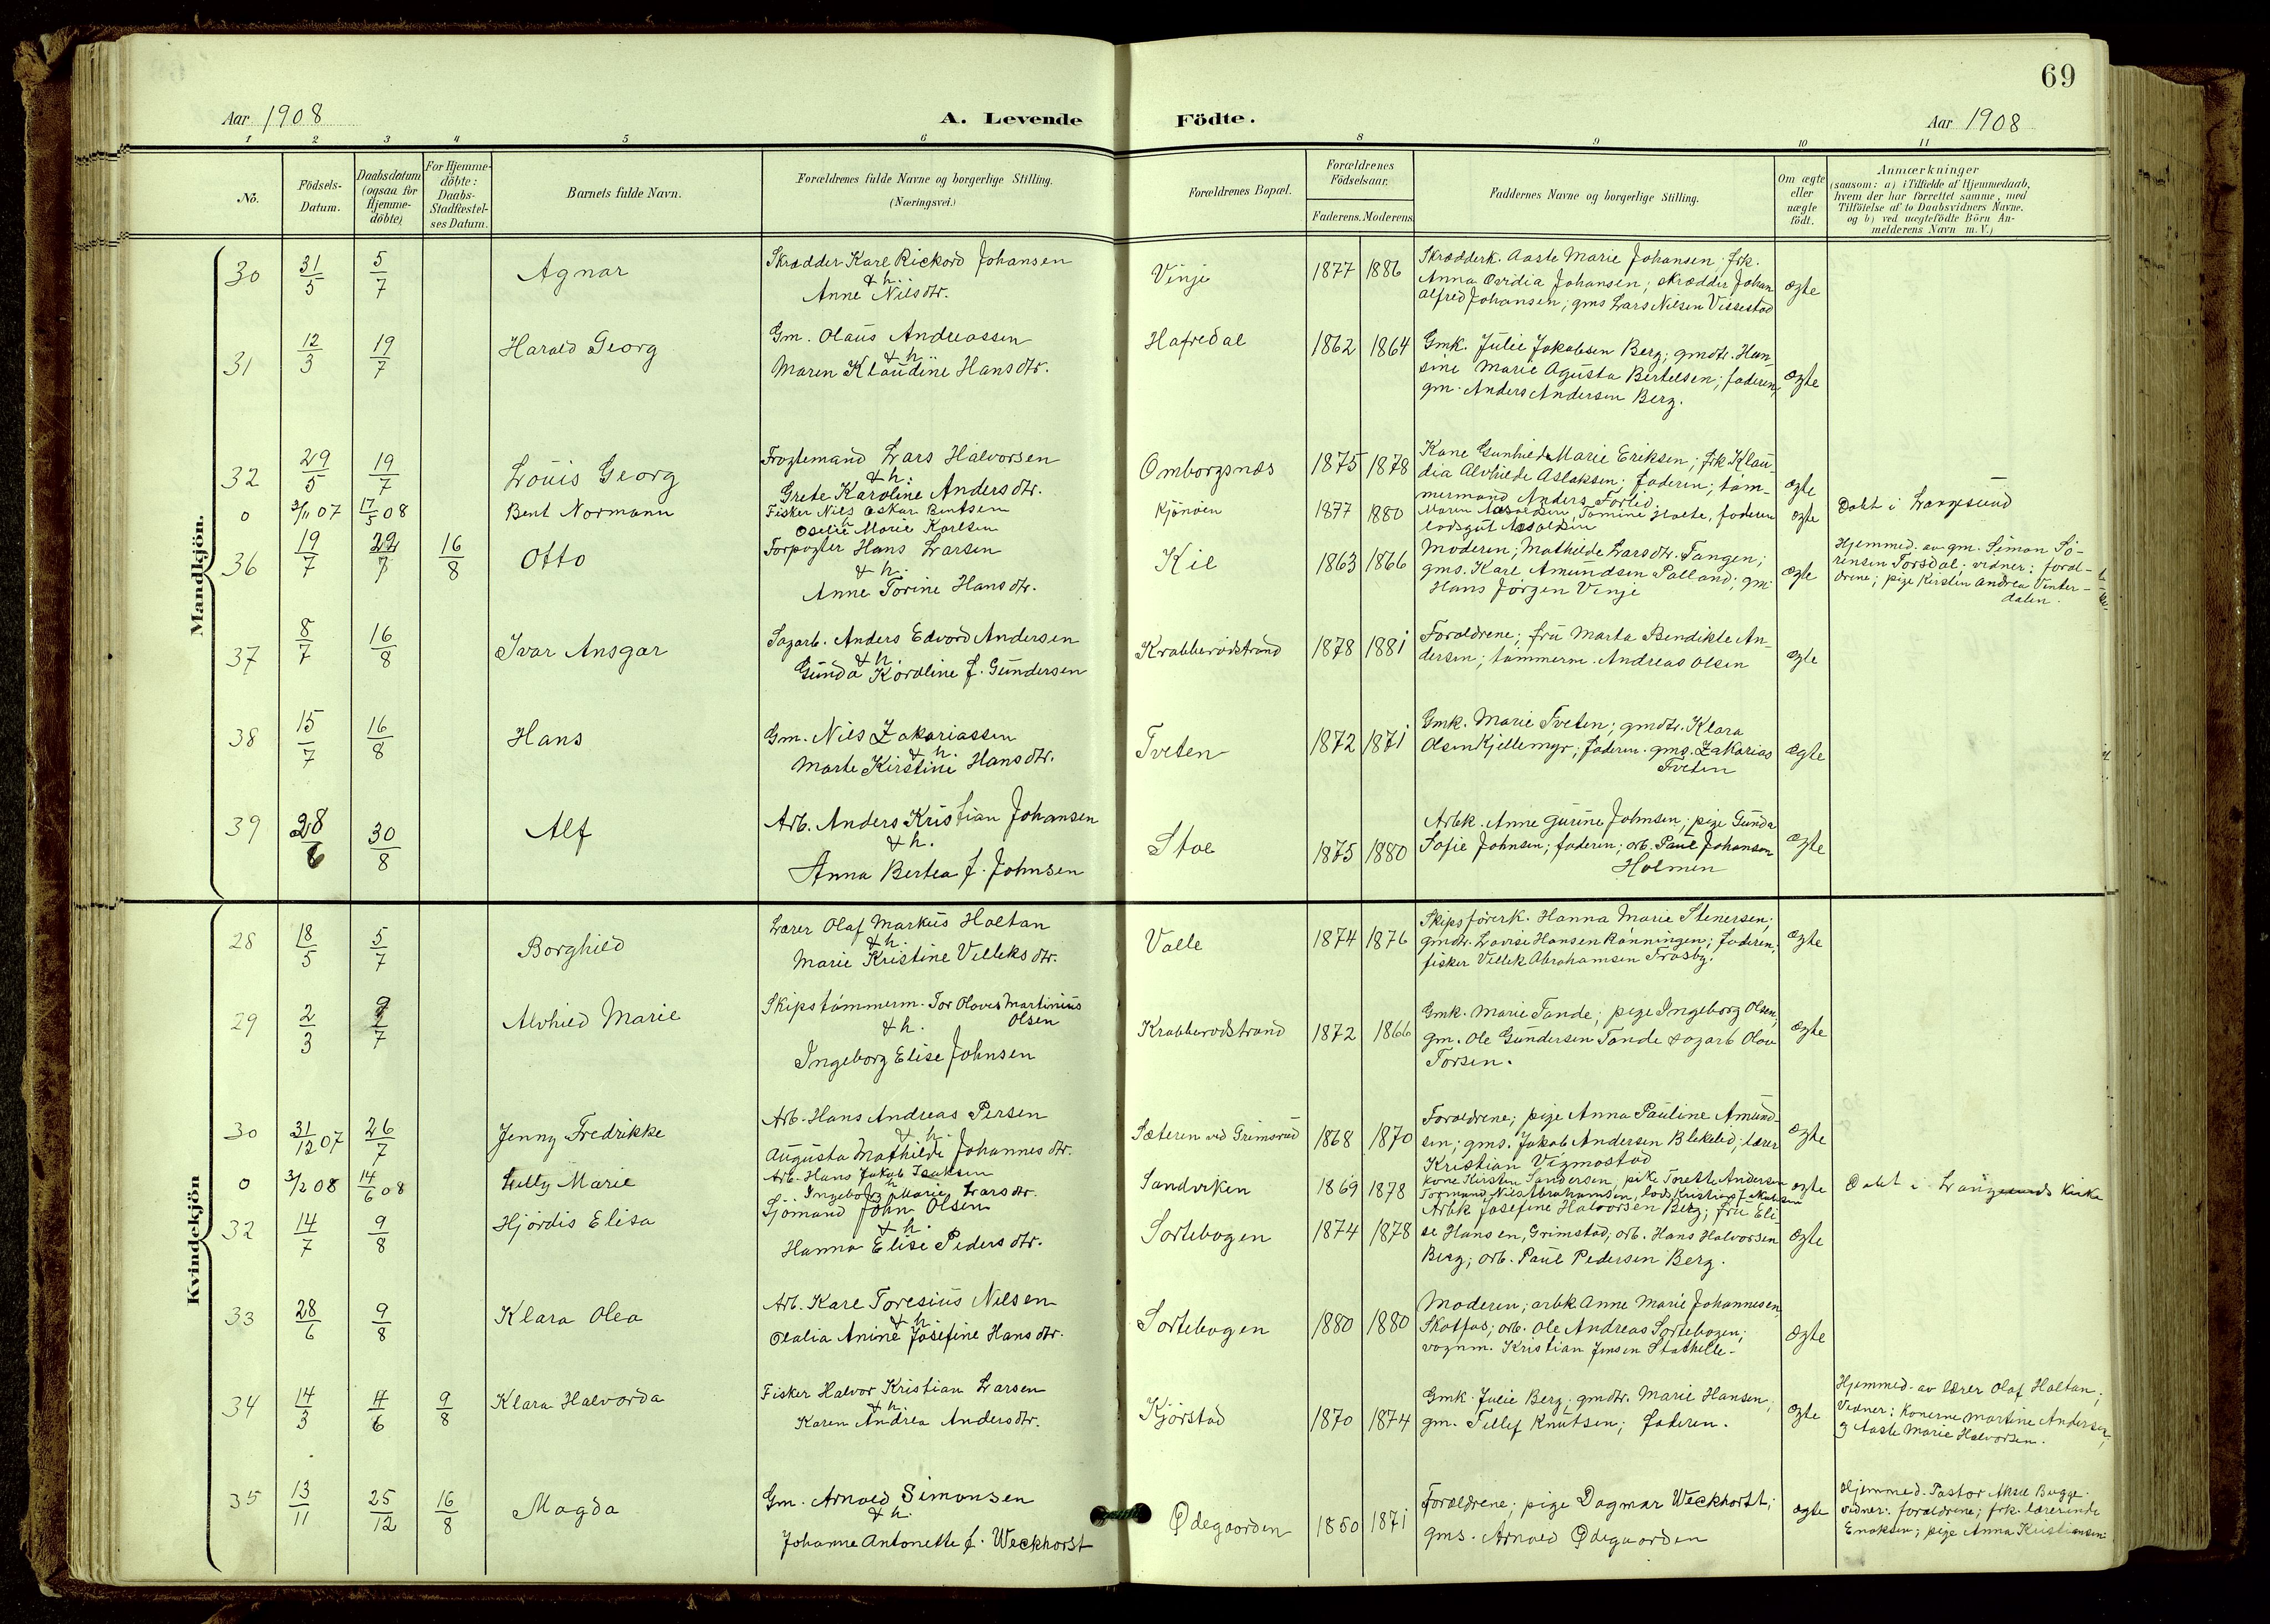 69
Aar 1908
A. Levende Födte.
Aar 1908
1 2 3 4 5 6 8 9 10 11
No.
Födsels-
Datum.
Daabsdatum
(ogsaa for
Hjemme-
döbte)
For Hjemme-
döbte:
Daabs-
Stadfæstel-
ses Datum.
Barnets fulde Navn.
Forældrenes fulde Navne og borgerlige Stilling.
(Næringsvei.)
Forældrenes Bopæl.
Forældrenes
Födselsaar.
Faderens. Moderens
Faddernes Navne og borgerlige Stilling.
Om ægte
eller
uægte
födt.
Anmærkninger
(saasom: a) i Tilfælde af Hjemmedaab,
hvem der har forrettet samme, med
Tilföielse af to Daabsvidners Navne.
og b) ved uægtefödte Börn An-
melderens Navn m.V.)
Mandkjön.
30 31/5 5/7 Agnar
Skrædder Karl Rickard Johansen
& h.
Anne Nilsdtr.
Vinje 1877 1886
Skrædderk. Aaste Marie Johansen; frk.
Anna Ovidia Johansen; skrædder Johan
Alfred Johansen; gms Lars Nilsen Vissestad
ægte
31 12/3 19/7 Harald Georg
Gm. Olaus Andreassen
& h.
Maren Klaudine Hansdtr.
Hafredal 1862 1864
Gmk. Julie Jakobsen Berg; gmdtr. Han-
sine Marie Agusta Bertelsen; faderen;
gm. Anders Andersen Berg.
ægte
32 29/5 19/7 Louis Georg
Fragtemand Lars Halvorsen
& h.
Grete Karoline Andersdtr.
Omborgsnæs 1875 1878
Kone Gunhild Marie Eriksen; frk Klau-
dia Alvhilde Aslaksen; faderen; töm-
mermand Anders Forlid.
ægte
0 3/11 07 17/5 08 Bent Normann
Fisker Nils Oskar Bentsen
h
Oselie Marie Karlsen
Kjönöen 1877 1880
Maren, Tomine Holte, faderen
lodsgut
ægte
Döbt i Langesund
36 19/7 22/7 16/8 Otto
Forpagter Hans Larsen
& h.
Anne Torine Hansdtr.
Kil 1863 1866
Moderen; Mathilde Larsdtr. Tangen;
gms. Karl Amundsen Palland; gm.
Hans Jörgen Vinje
ægte
Hjemmed. av gm. Simon Sö-
rensen Torsdal; vidner: foræl-
drene; pige Kirstin Andrea Vinter-
dalen.
37 8/7 16/8 Ivar Ansgar
Sagarb. Anders Edvard Andersen
& h.
Gunda Karoline f. Gundersen
Krabberödstrand 1878 1881
Forældrene; fru Marta Bendikte An-
dersen; tömmerm. Andreas Olsen
ægte
38 15/7 16/8 Hans
Gm. Nils Zakariassen
& h.
Marte Kirstine Hansdtr.
Tveten 1872 1871
Gmk. Marie Tveten; gmdtr. Klara
Olsen Kjellemyr; faderen. gms. Zakarias
Tveten
ægte
39 28/6 30/8 Alf
Arb. Anders Kristian Johansen
& h.
Anna Bertea f. Johnsen
Stoe 1875 1880
Arbk. Anne Gurine Johnsen; pige Gunda
Sofie Johnsen; faderen; arb. Paul Johansen
Holmen
ægte
Kvindekjön
28 18/5 5/7 Borghild
Lærer Olaf Markus Haltan
& h.
Marie Kristine Velleksdtr.
Valle 1874 1876
Skipsförerk. Hanna Marie Stenersen;
gmdtr. Lovise Hansen Rönningen; faderen;
fisker Vellek Abrahamsen Traasby.
ægte
29 2/3 9/7 Alvhild Marie
Skipstömmerm. Tor Olaves Martinius
Olsen
& h.
Ingeborg Elise Johnsen
Krabberödstrand 1872 1866
Gmk. Marie Tande; pige Ingeborg Olsen;
gm. Ole Gundersen Tande sagarb Olav
Torsen.
ægte
30 31/12 07 26/7 Jenny Fredrikke
Arb. Hans Andreas Persen
& h.
Augusta Mathilde Johannesdtr.
Sæteren ved Grimsrud 1868 1870
Forældrene; pige Anna Pauline Amund-
sen; gms. Jakob Andersen Blekelid; lærer
Kristian Vigmostad
ægte
0 3/2 08 14/6 08 Lully Marie
Arb. Hans Jakob Isaksen
h
Ingeborg Marie Larsdtr.
Sandviken 1869 1878
kone Kirsten Sandersen, pike Torette Andersen
Tormand Nils Abrahamsen, lods Kristian Jakobsen
ægte
Döbt i Langesunds kirke
32 14/7 9/8 Hjördis Elisa
Sjömand John Olsen
& h.
Hanna Elise Pedersdtr.
Sortebogen 1874 1878
Arbk Josefine Halvorsen Berg; fru Eli-
se Hansen, Grimstad; arb. Hans Halvorsen
Berg; arb. Paul Pedersen Berg.
ægte
33 28/6 9/8 Klara Olea
Arb. Karl Toresius Nilsen
& h.
Olalia Anine Josefine Hansdtr.
Sortebogen 1880 1880
Moderen; arbk Anne Marie Johannesen,
Skotfos; arb. Ole Andreas Sortebogen;
vognm. Kristian Jensen Stathelle.
ægte
34 14/3 4/6 9/8 Klara Halvorda
Fisker Halvor Kristian Larsen
& h.
Karen Andrea Andersdtr.
Kjörstad 1870 1874
Gmk. Julie Berg; gmdtr. Marie Hansen;
gm. Tellef Knutsen; faderen.
ægte
Hjemmed. av lærer Olaf Haltan;
Vidner: Konerne Martine Andersen,
og Aaste Marie Halvorsen.
35 13/11 25/12 16/8 Magda
Gm. Arnold Simonsen
& h.
Johanne Antonette f. Weckhorst
Ødegaarden 1850 1871
Forældrene; pige Dagmar Weckhorst;
gms. Arnold Ødegaarden
ægte
Hjemmed. Pastor Bugge.
vidner: forældrene; frk. lærerinde
Enoksen; pige Anna Kristiansen